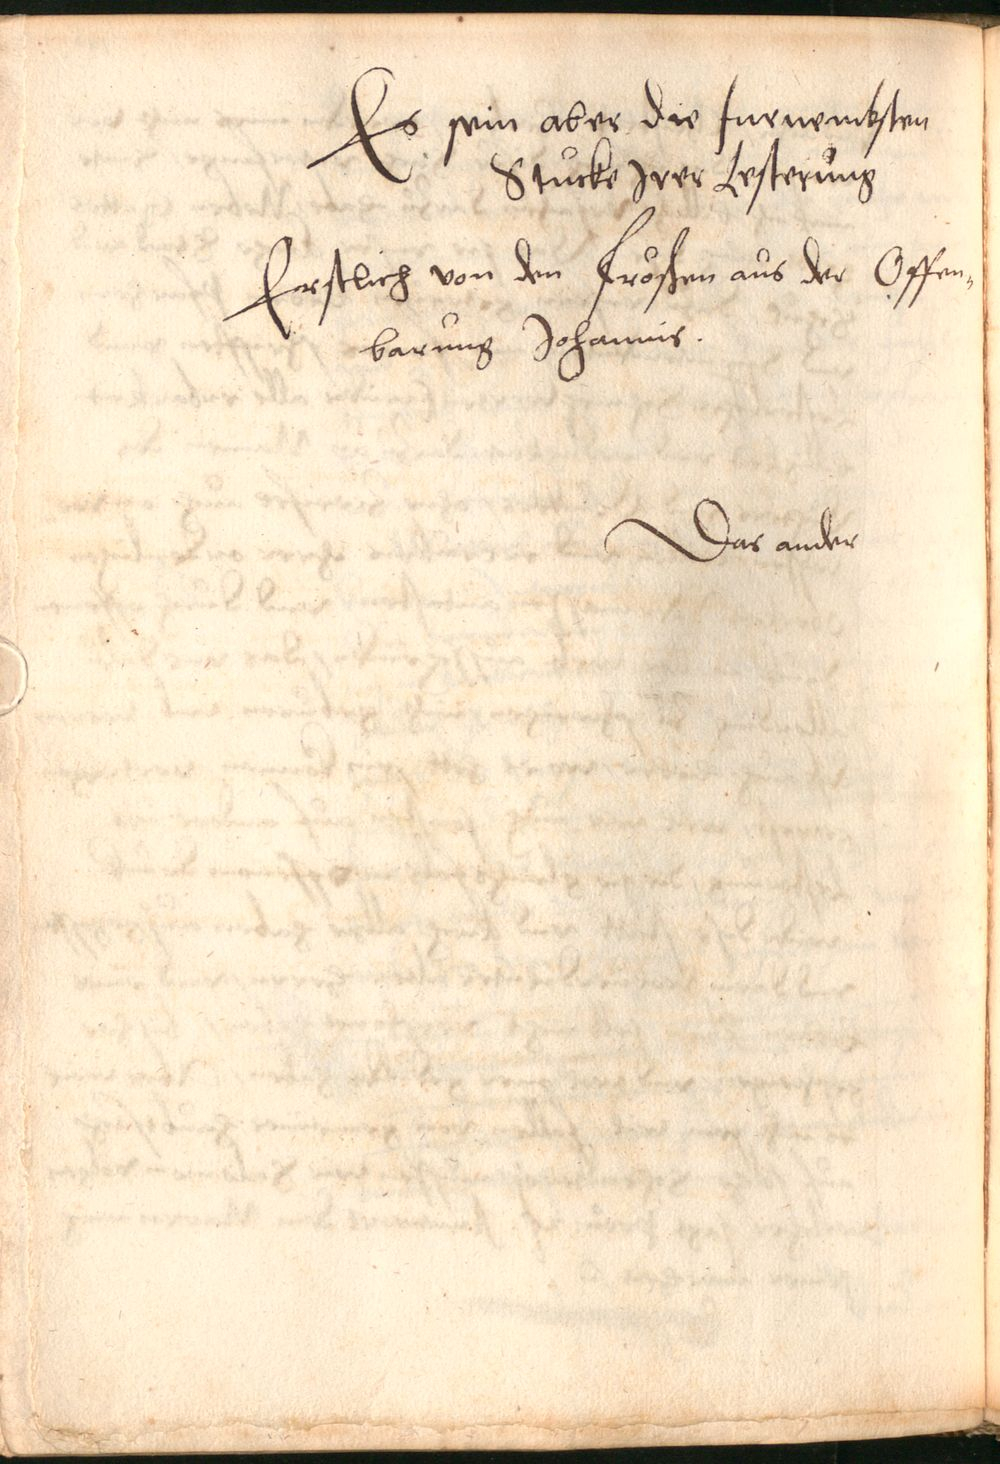 Es sein aber die furnembsten
Stucke Irer Lesterung
Erstlich von den fröschen aus der Offen-
barung Johannis.
Das ander